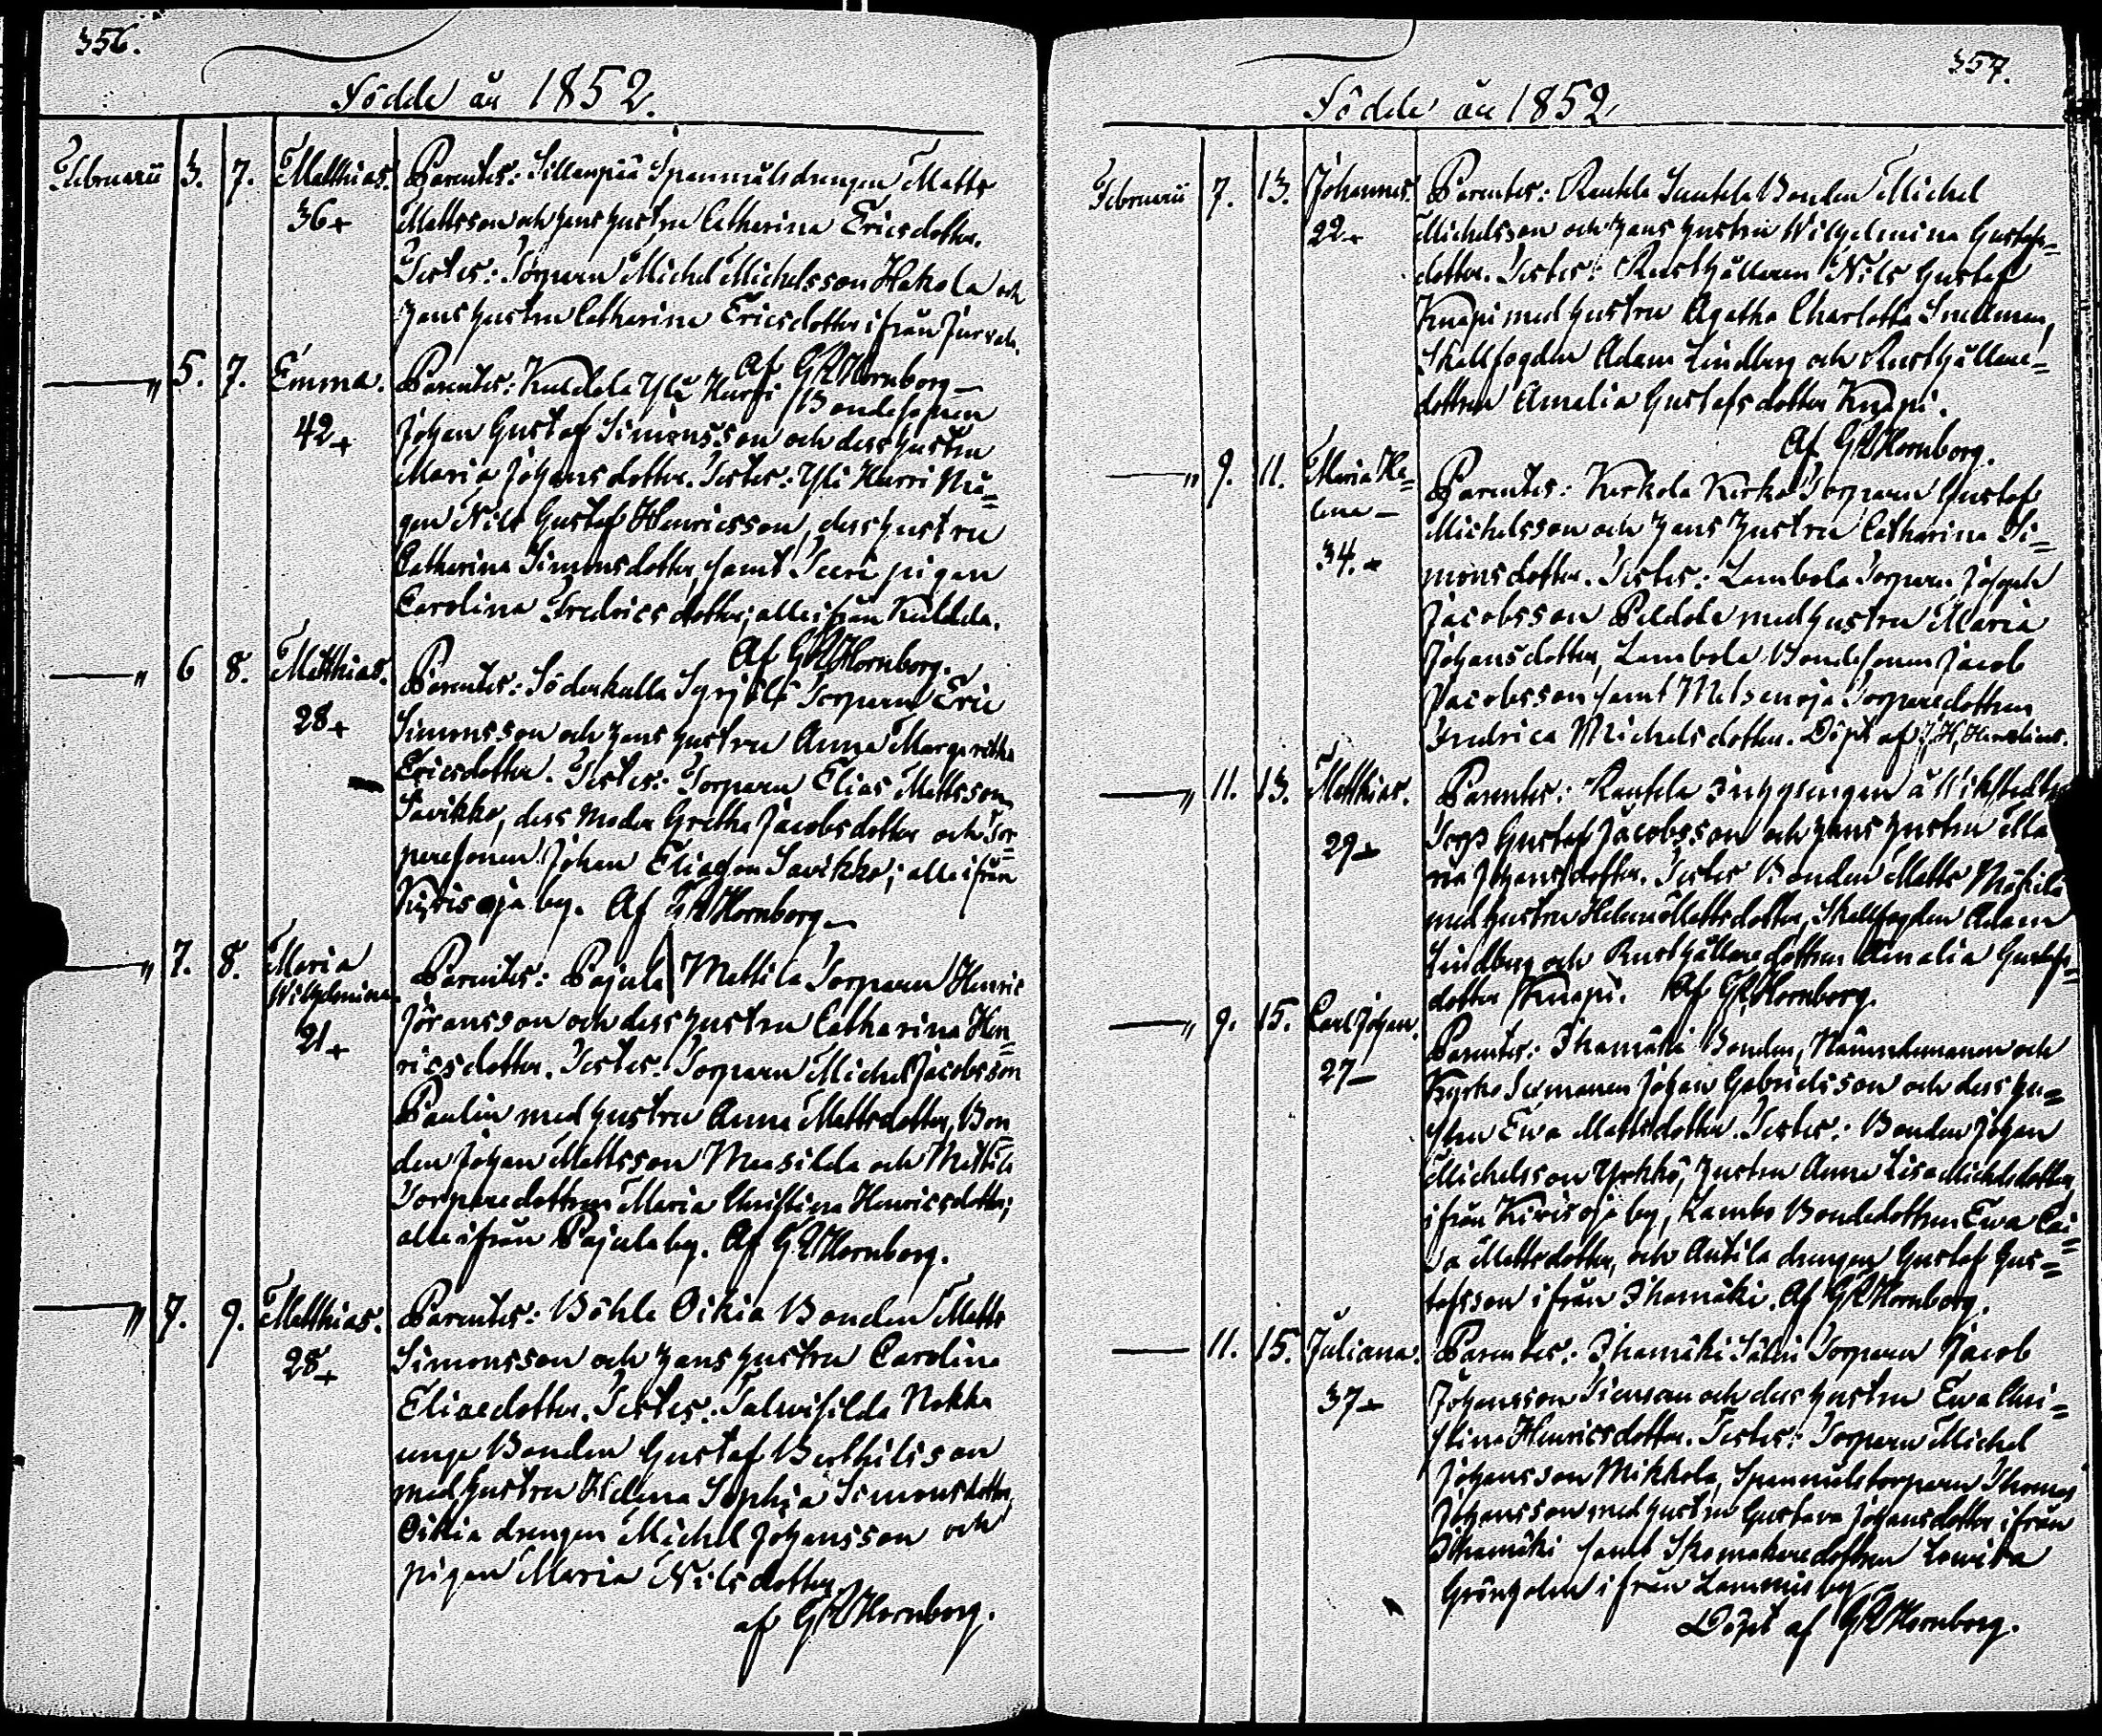 356.
Födde år 1852.
Februarii 3. 7. Matthias. Parentes: Sillanpää Spanmålsdrängen Matts
36+ Mattsson och hans hustru Catharina Ericsdotter.
Testes: Torparen Michel Michelsson Hakola och
hans hustru Catharina Ericsdotter ifrån
Af GRHornborg
" 5. 7. Emma. Parentes: Kuldela Yli Hurri Bondesonen
42+ Johan Gustaf Simonsson och dess hustru
Maria Johansdotter. Testes: Yli Hurri Må=
gen Nils Gustaf Henricsson, dess hustru
Catharina Simonsdotter, samt pigan
Carolina Fredricsdotter; alla ifrån Kuldela.
Af GRHornborg.
" 6 8. Matthias. Parentes: Söderkulla Syrjälä Torparen Eric
28+ Simonsson och hans hustru Anna Margaretha
Ericsdotter. Testes: Torparen Elias Mattsson
Savikko, dess moder Gretha Jacobsdotter och Tor=
paresonen Johan Eliasson Savikko; alla ifrån
Kirisoja by. Af GRHornborg
" 7. 8. Maria Parentes: Pajula Mattila Torparen Henric
Wilhelmina. Jöransson och dess hustru Catharina Hen=
21+ ricsdotter. Testes: Torparen Michel Jacobsson
Paulin med hustru Anna Mattsdotter, Bon=
den Johan Mattsson Maasilda och Mattila
Torparedottren Maria Christina Henricsdotter;
alla ifrån Pajula by. Af GRHornborg.
" 7. 9. Matthias. Parentes: Böhle Oikia Bonden Matts
28+ Simonsson och hans hustru Carolina
Eliaedotter. Testes: Talwisilda Nokka
unge Bonden Gustaf Berthilsson
med hustru Helena Sophia Simonsdotter,
Oikia drängen Michel Johansson och
pigan Maria Nilsdotter.
af GRHornborg.
357.
Födde år 1852
Februarii 7. 13. Johannes. Parentes: Rautela Bonden Michel
22+ Michelsson och hans hustru Wilhelmina Gustafs=
dotter. Testes: Rusthållaren Nils Gustaf
Knapi med hustru Agatha Charlotta Snellman,
Skallfogden Adam Lindberg och Rusthållare=
dottren Amalia Gustafsdotter Knapi.
Af GRHornborg.
" 9. 11. Maria He= Parentes: Kerkola Kerko Torparen Gustaf
lena – Michelsson och hans hustru Catharina Si=
34.+ monsdotter. Testes: Lambola Torparen Joseph
Jacobsson Peldola med hustru Maria
Johansdotter, Lambola Bondesonen Jacob
Jacobsson samt Metsenoja Torparedottren
Fredrica Michelsdotter. Döpt af
" 11. 13. Matthias. Parentes: Rautela Inhysingen å
29+ Torp Gustaf Jacobsson och hans hustru Ma
ria Johansdotter. Testes Bonden Matts Mäkilä
med hustru Helena Mattsdotter, Skallfogden Adam
Lindberg och Rusthållaredottren Amalia Gustafs=
dotter Knapi. Af GRHornborg.
" 9. 15. Carl Johan. Parentes: Ihamäki Bonden, Nämndemannen och
27– Kyrko Sexmannen Johan Gabrielsson och dess hu=
stru Ewa Mattsdotter. Testes: Bonden Johan
Michelsson Yrkkö, hustru Anna Lisa Michelsdotter
ifrån Kirisoja by, Kambo Bondedottren Ewa Cai=
sa Mattsdotter, och Antila drängen Gustaf Gus=
tafsson ifrån Ihamäki. Af GRHornborg.
11. 15. Juliana. Parentes: Ihamäki Torparen Jacob
37+ Johansson och dess hustru Ewa Chri=
stina Henricsdotter. Testes: Torparen Michel
Johansson Mikkola, Spanmålstorparen Thomas
Johansson med hustru Gustava Johansdotter ifrån
Ihamäki samt Skomakaredottren Lowisa
Grönholm ifrån by
Döpt af GRHornborg.